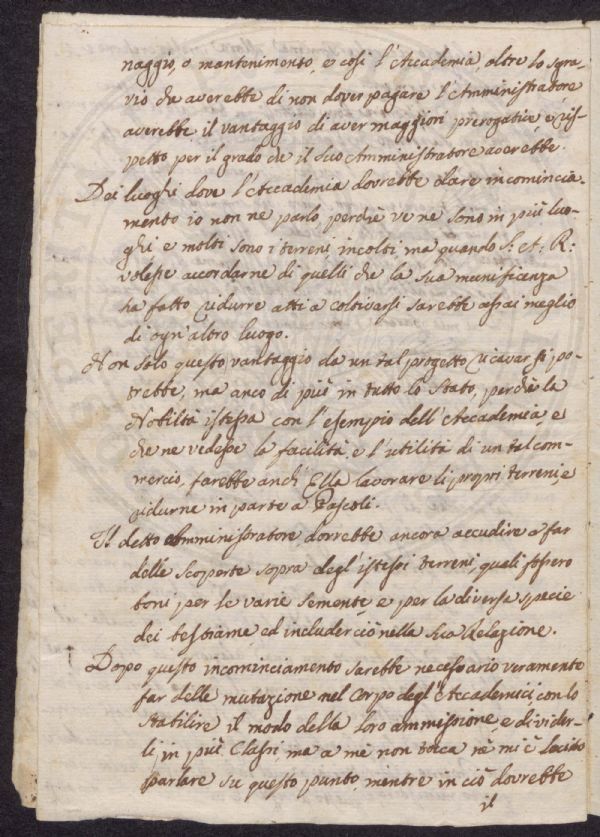 naggio, o mantenimento, e così l'Accademia, oltre lo sgra-
vio che averebbe di non dover pagare l'Amministratore
averebbe il vantaggio di aver maggiori prerogative, e ris-
petto per il grado che il suo Amministratore averebbe.
Dei luoghi dove l'Accademia dovrebbe dare incomincia-
mento io non ne parlo perchè ve ne sono in più luo-
ghi e molti sono i terreni incolti ma quando S: A: R:
volesse accordarne di quelli che la sua munificenza
ha fatto ridurre atti a coltivarsi sarebbe assai meglio
di ogn'altro luogo.
Non solo questo vantaggio da un tal progetto ricavar si po-
trebbe, ma anco di più in tutto lo Stato, perchè la
Nobiltà istessa con l'esempio dell'Accademia, e
che ne vedesse la facilità, e l'utilità di un tal com-
mercio, farebbe anch'Ella lavorare li proprj terreni e
ridurne in parte a Pascoli.
Il detto Amministratore dovrebbe ancora accudire a far
delle scoperte sopra degl'istessi terreni, quali fossero
boni per le varie semente, e per la diversa specie
dei bestiame, ed includerciò nella sua Relazione.
Dopo questo incominciamento sarebbe necessario veramente
far delle mutazione nel Corpo degl'Accademici, con lo
stabilire il modo della loro ammissione, e divider-
li in più Classi, ma a mè non tocca nè mi è lecito
parlare su questo punto, mentre in ciò dovrebbe
il